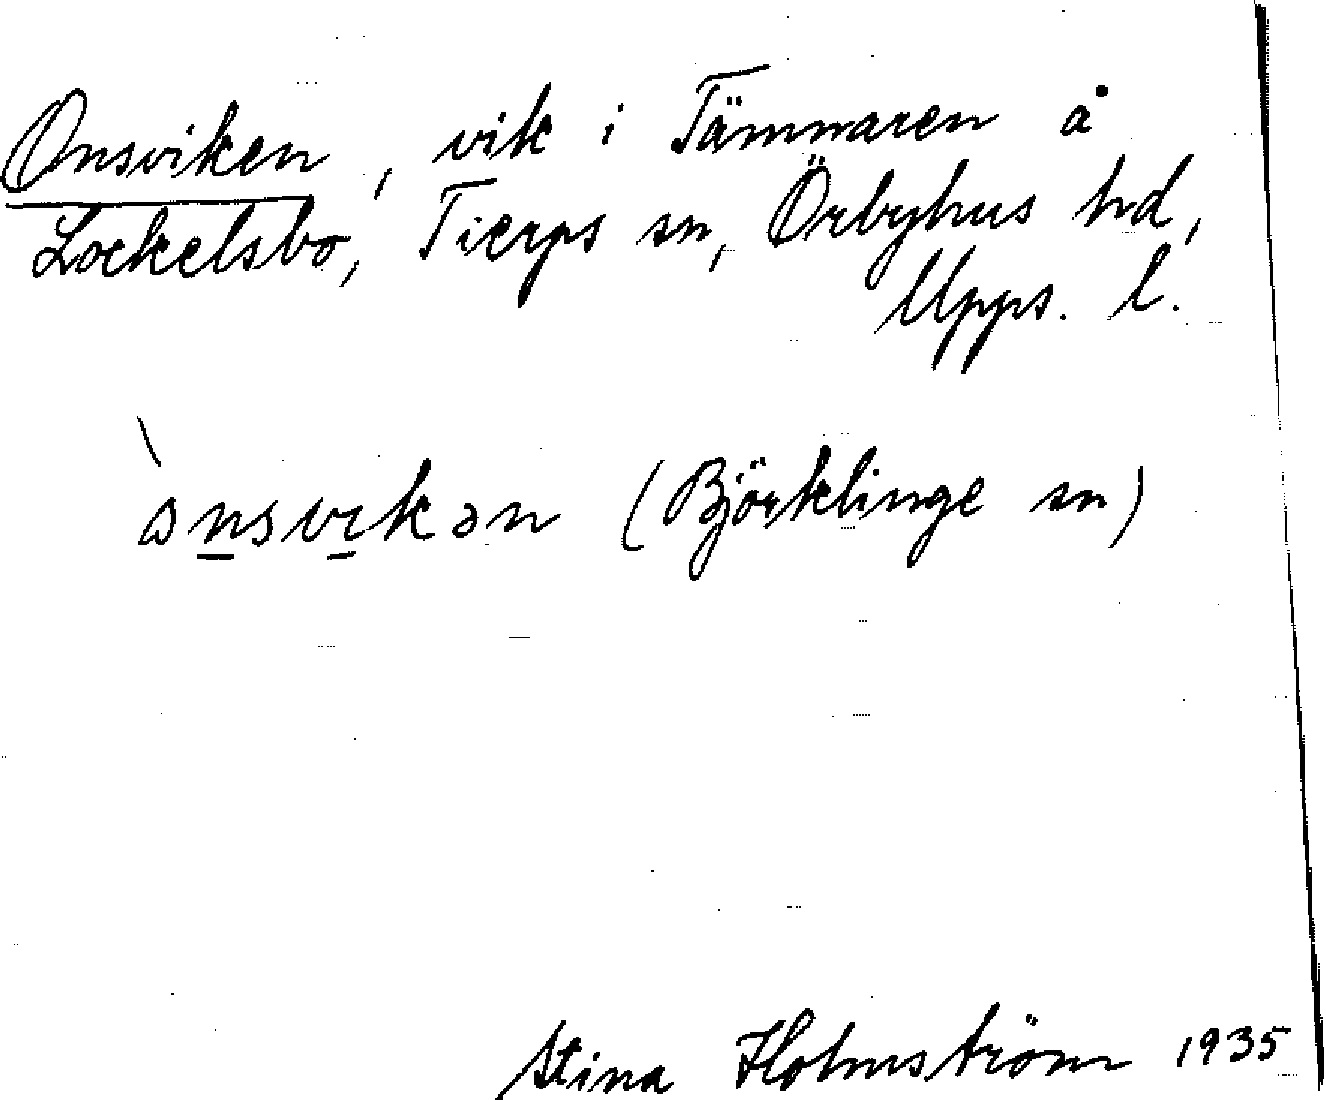 Onsviken, vik i Tämnaren å
Lockelsbo, Tierps sn, Örbyhus hd,
Upps. l.
ònsvikən (Björklinge sn)
Stina Holmström 1935